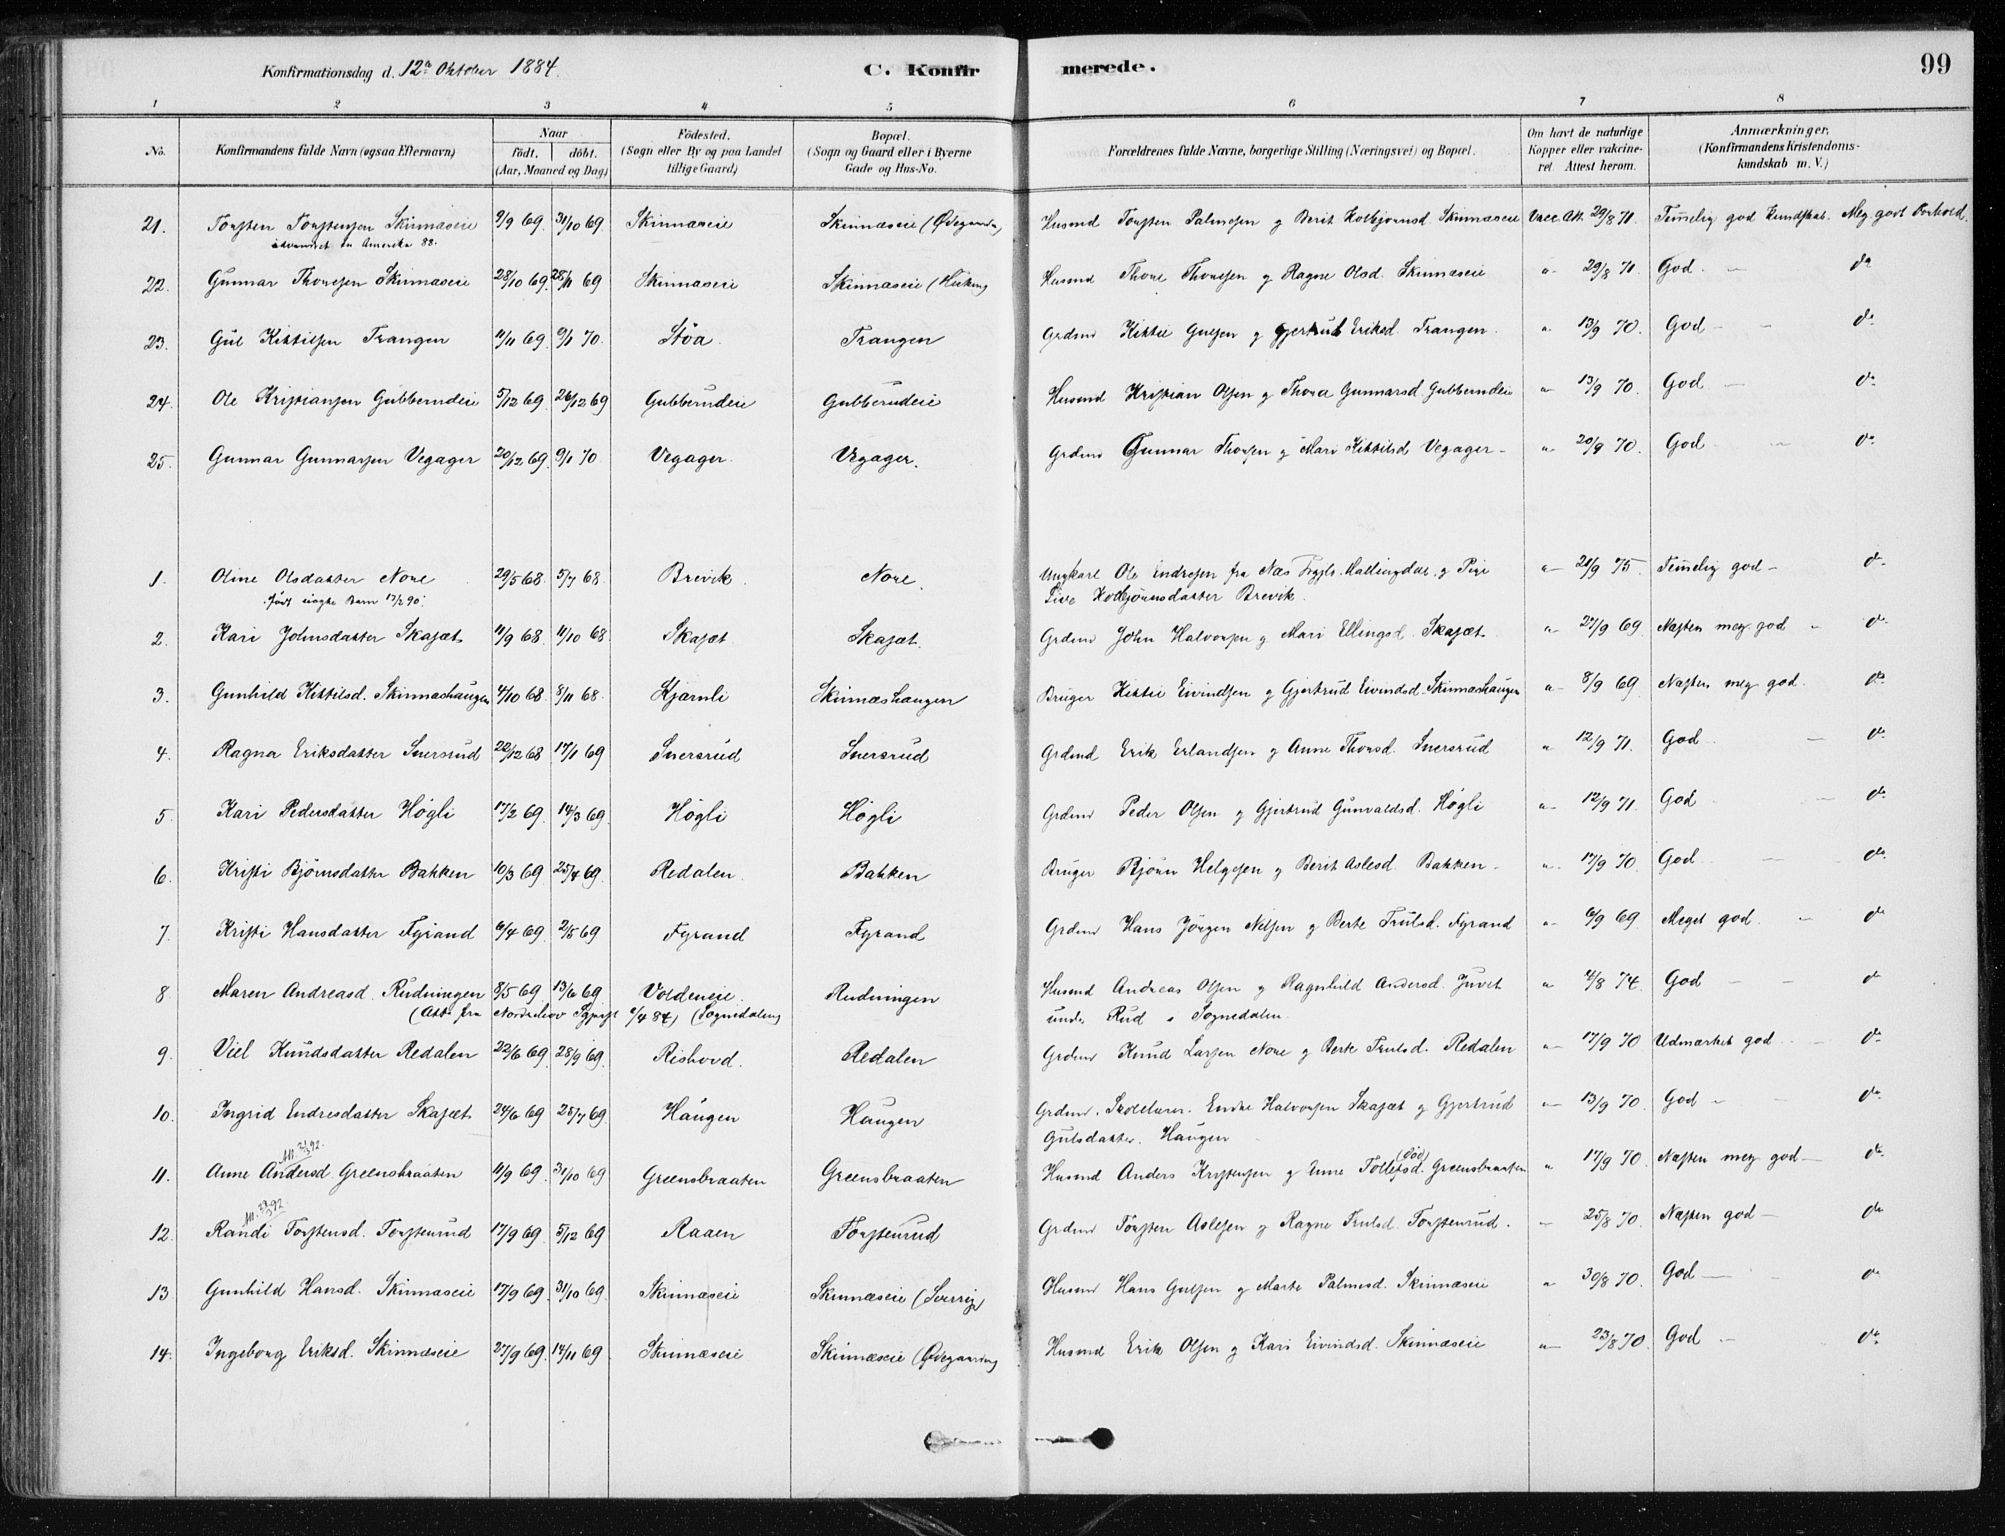 Konfirmationsdag d. 12te Oktober 1884. C. Konfirmerede. 99
1 2 3 4 5 6 7 8
No. Konfirmandens fulde Navn (ogsaa Efternavn) Naar født. døbt. (Aar, Maaned og Dag) Fødested. (Sogn eller By og paa Landet tillige Gaard) Bopæl. (Sogn og Gaard eller i Byerne Gade og Hus-No. Forældrenes fulde Navne, borgerlige Stilling (Næringsvei) og Bopæl. Om havt de naturlige Kopper eller vaccineret. Attest herom. Anmærkninger. (Konfirmandens Kristendomskundskab m. V.)
21. Torsten Torstensen Skinnæseie 9/9 69. 31/10 69 Skinnæseie Skinnæseie ( Husmd Torsten Palmesen g Berit Kolbjørnsd. Skinnæseie Vacc. Att. 29/8 71. Temelig god Kundskab. Meg godt Forhold.
udvandret til Amerika 88.
22. Gunnar Thoresen Skinnæseie 28/10 69. 28/11 69 Skinnæseie Skinnæseie ( Husmd Thore Thoresen g Ragne Olsd. Skinnæseie " 29/8 71. God. — do
23. Gul Kittilsen Trangen 11/11 69. 9/1 70. Støa. Trangen Grdmd Kittil Gulsen g Gjertrud Eriksd. Trangen. " 13/9 70. God — — do
24. Ole Kristiansen Gubberudeie 5/12 69. 26/12 69 Gubberudeie Gubberudeie Husmd Kristian Olsen g Thora Gunnarsd. Gubberudeie " 13/9 70. God — do
25. Gunnar Gunnarsen Vegager 20/12 69. 9/1 70 Vegager. Vegager. Grdmd Gunnar Thorsen g Mari Kittilsd Vegager — " 20/9 70. God — do
1. Oline Olsdatter Nore 29/5 68. 5/7 68. Brevik. Nore. Ungkarl Ole Endresen fra Næs Prgjld. Hallingdal g Pige " 21/9 75. Temelig god — do
født uægte Barn 17/2 90. Sive Kolbjørnsdatter Brevik.
2. Kari Johnsdatter Skajæt 11/9 68. 11/10 68. Skajæt. Skajæt. Grdmd John Halvorsen g Mari Ellingsd. Skajæt. " 27/9 69 Næsten meg god — do
3. Gunhild Kittilsd. Skinnæshaugen 4/10 68. 8/11 68. Kjærnli Skinnæshaugen Bruger Kittil Eivindsen g Gjertrud Eivindsd. Skinnæshaugen " 8/9 69 Næsten meg god. do
4. Ragna Eriksdatter Snersrud 22/12 68 17/1 69 Snersrud Snersrud Grdmd Erik Erlandsen g Anne Thorsd. Snersrud " 12/9 71. God — do
5. Kari Pedersdatter Høgli 17/2 69. 14/3 69. Høgli Høgli Grdmd Peder Olsen g Gjertrud Gunvaldsd. Høgli " 12/9 71. God — do
6. Kristi Bjørnsdatter Bakken 10/3 69. 25/4 69. Redalen. Bakken Bruger Bjørn Helgesen g Berit Aslesd. Bakken — " 17/9 70. God — do
7. Kristi Hansdatter Fyrand 6/4 69. 2/5 69 Fyrand Fyrand Grdmd Hans Jørgen Nilsen g Berte Trulsd. Fyrand " 6/9 69. Meget god. — do
8. Maren Andreasd. Rudningen 8/5 69. 13/6 69 Voldeneie. Rudningen Husmd Andreas Olsen g Ragnhild Andersd. Juvet " 4/8 74. God — — do
(Att. fra Norderhov Sgprst 6/4 84) (Sognedalen) under Rud i Sognedalen.
9. Viel Knudsdatter Redalen 22/6 69. 28/9 69. Rishovd. Redalen Grdmd Knud Larsen Nore g Berte Trulsd. Redalen " 17/9 70 Udmærket god — do
10. Ingrid Endresdatter Skajæt 24/6 69 25/7 69. Haugen Haugen Grdmd. Skolelærer. Endre Halvorsen Skajæt g Gjertrud " 13/9 70. God — — do
Gulsdatter. Haugen
Att. 2/3 92.
11. Anne Andersd Greensbraaten 11/9 69. 31/10 69 Greensbraaten Greensbraaten Husmd Anders Kristensen g Anne Tollefsd. (død) Greensbraaten " 17/9 70. Næsten meg god — do
12. Randi Torstensd. Torstenrud 17/9 69. 5/12 69 Raaen Torstenrud Grdmd Torsten Aslesen g Ragne Trulsd. Torstenrud. " 25/8 70. Næsten god — do
13. Gunhild Hansd. Skinnæseie 17/9 69. 31/10 69. Skinnæseie Skinnæseie ( Husmd Hans Gulsen g Marte Palmesd. Skinnæseie " 30/8 70. God — do
14. Ingeborg Eriksd. Skinnæseie 27/9 69. 14/11 69. Skinnæseie Skinnæseie ( Husmd Erik Olsen g Kari Eivindsd. Skinnæseie " 23/8 70. God — do